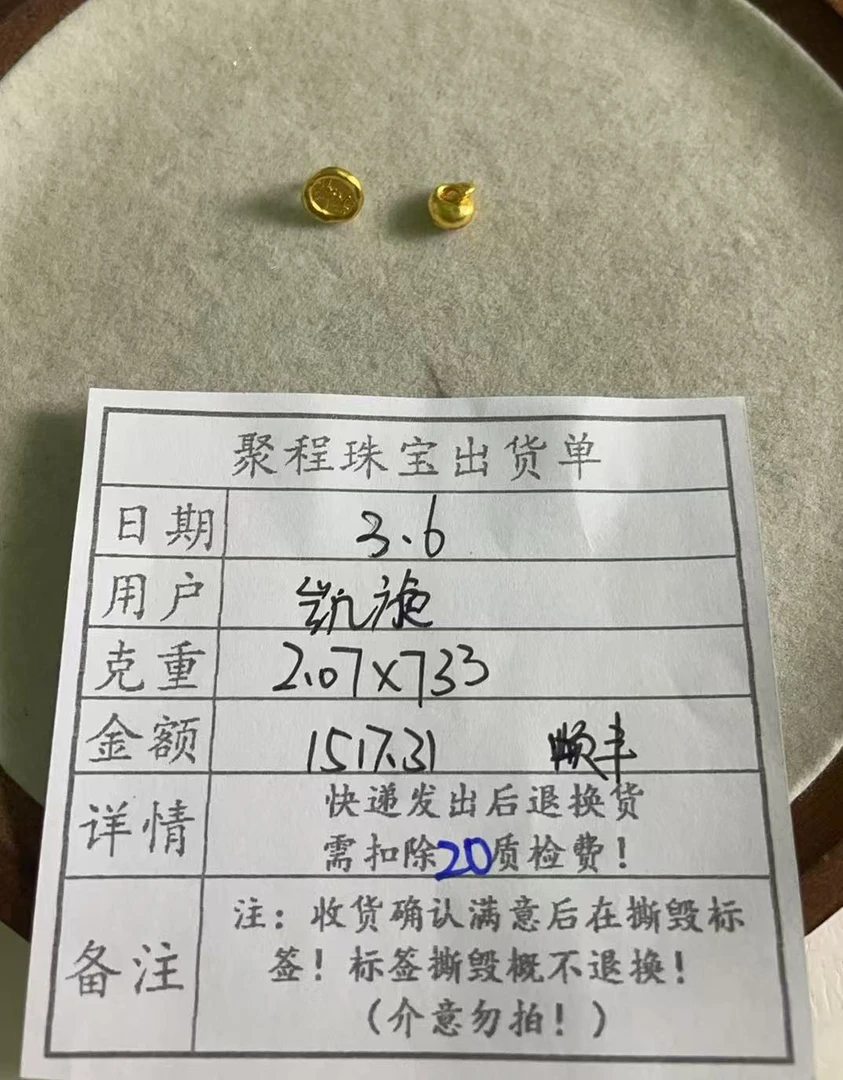 聚程珠宝出货单
日期 3.6
用户 凯旋
克重 2.07×733
金额 1517.31 顺丰
详情 快递发出后退换货
需扣除20质检费！
备注 注：收货确认满意后在撕毁标
签！标签撕毁概不退换！
（介意勿拍！）